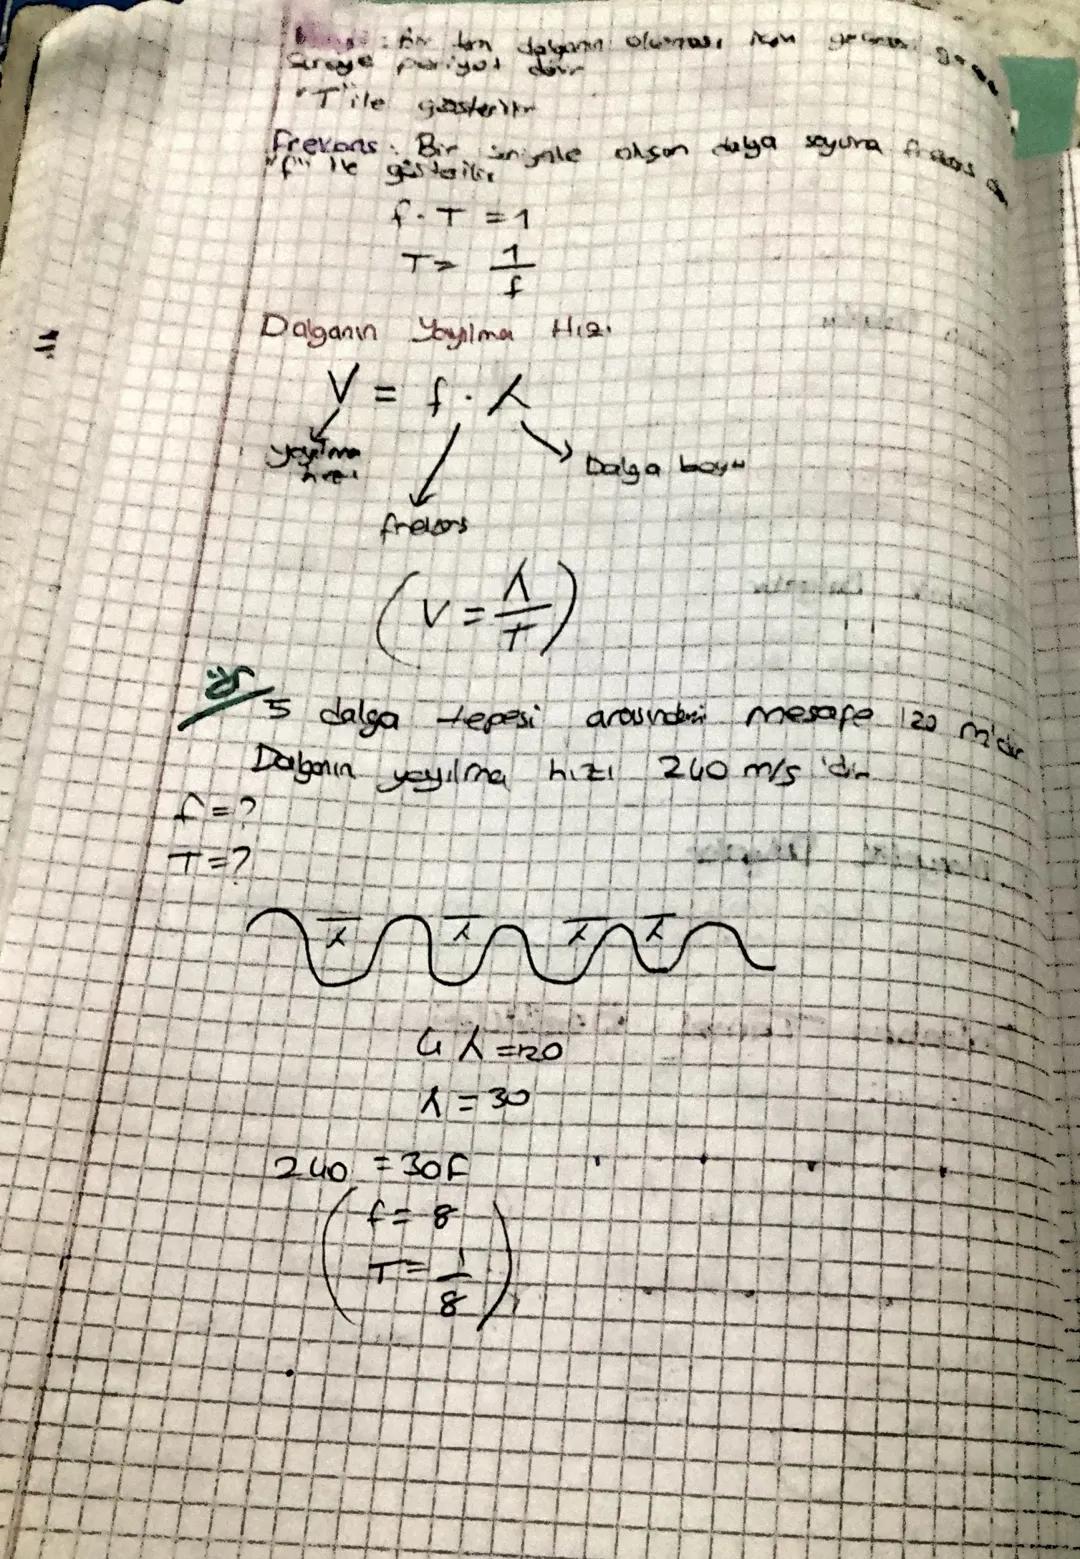 : Bir tam dalganın oluşması için geçen
Süreye periyot denir
"T" ile gösterilir
Frekans : Bir saniyede oluşan dalga sayısına frekans
"f" ile gösterilir
f . T = 1
T = 1/f
Dalganın Yayılma Hızı
V = f . λ
yayılma hızı
Dalga boyu
frekans
(V = λ/T)
ör/ 5 dalga tepesi arasındaki mesafe 120 m'dir
Dalganın yayılma hızı 240 m/s 'dir
f = ?
T = ?
λ λ λ λ
4 λ = 120
λ = 30
240 = 30f
f = 8
T = 1/8